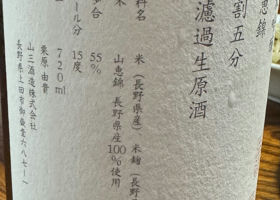 恵錦
割五分
濾過生原酒
料名 米(長野県産)米麹(長野
米 山恵錦 長野県産100%使用
歩合 55%
ール分 15度
720ml
栗原由貴
山三酒造株式会社
長野県上田市御嶽堂687-1